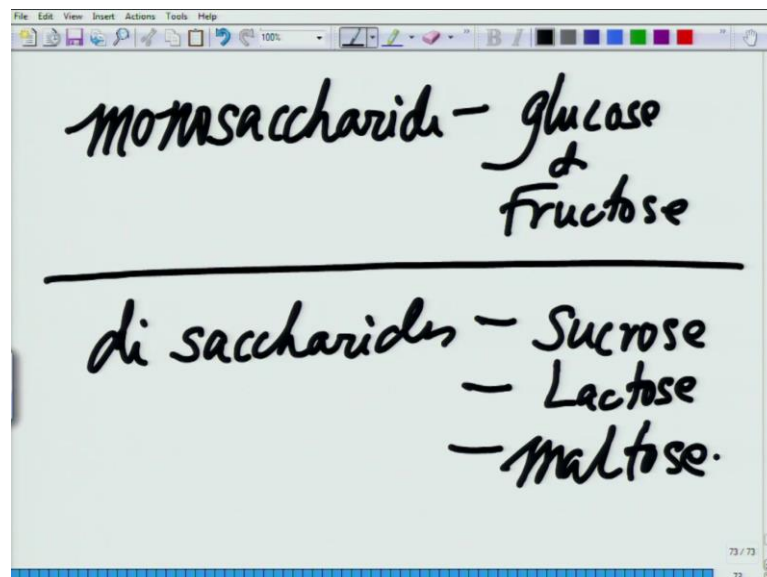 File Edit View Insert Actions Tools Help
100% B I
monosaccharide - glucose
&
Fructose
di saccharides - Sucrose
- Lactose
- maltose.
73 / 73
73